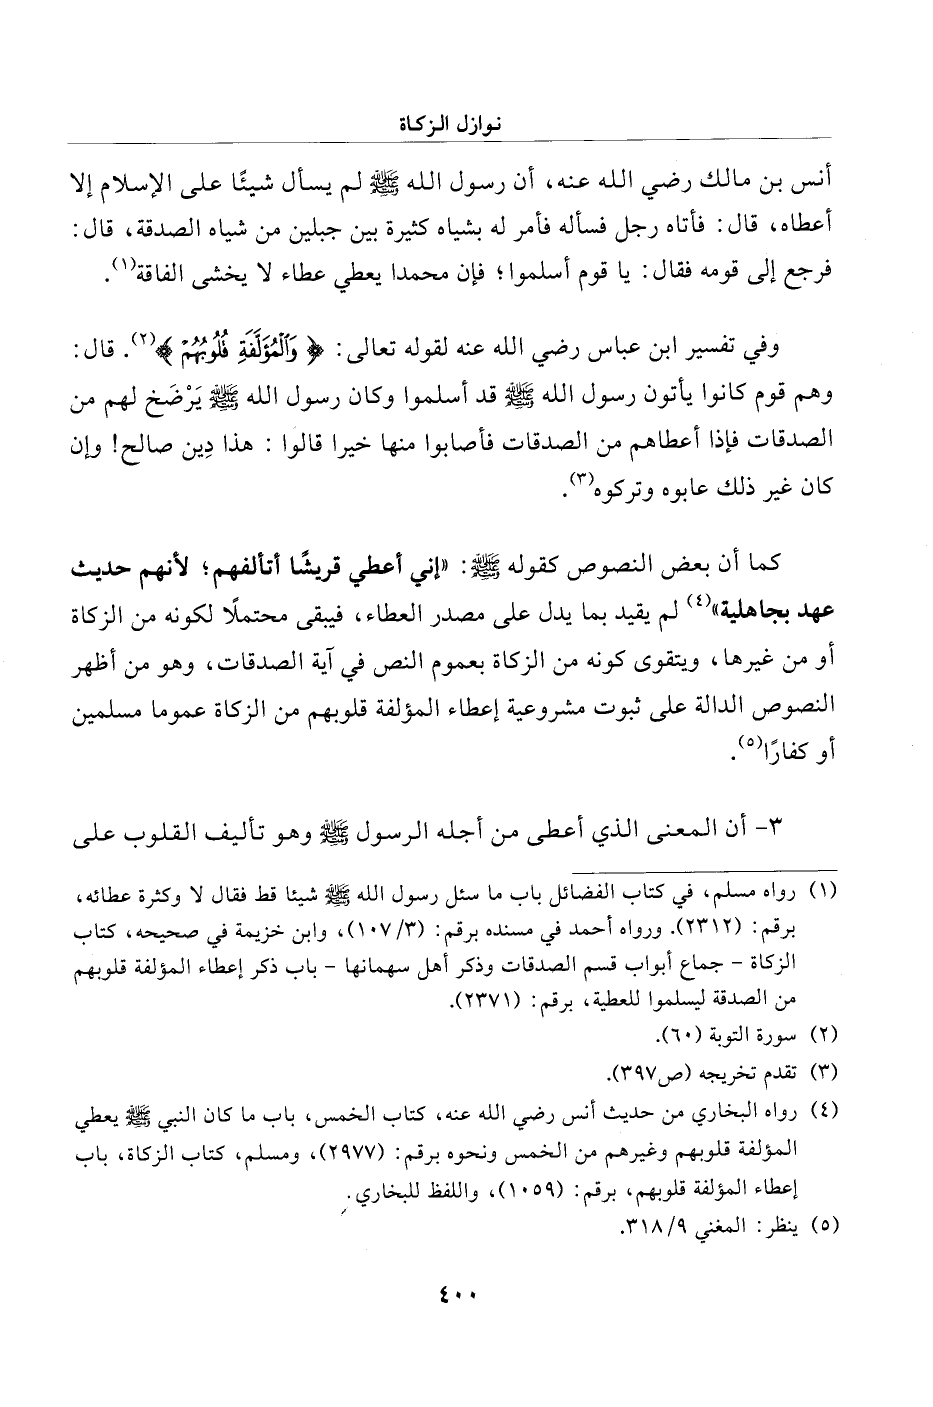 نوازل الزكاة
أنس بن مالك رضي الله عنه، أن رسول الله ﷺ لم يسأل شيئًا على الإسلام إلا
أعطاه، قال: فأتاه رجل فسأله فأمر له بشياه كثيرة بين جبلين من شياه الصدقة، قال:
فرجع إلى قومه فقال: يا قوم أسلموا؛ فإن محمدا يعطي عطاء لا يخشى الفاقة(١).
وفي تفسير ابن عباس رضي الله عنه لقوله تعالى: ﴿ وَٱلْمُؤَلَّفَةِ قُلُوبُهُمْ ﴾(٢). قال:
وهم قوم كانوا يأتون رسول الله ﷺ قد أسلموا وكان رسول الله ﷺ يَرْضَخ لهم من
الصدقات فإذا أعطاهم من الصدقات فأصابوا منها خيرا قالوا : هذا دِين صالح! وإن
كان غير ذلك عابوه وتركوه(٣).
كما أن بعض النصوص كقوله ﷺ: «إني أعطي قريشًا أتألفهم؛ لأنهم حديث
عهد بجاهلية»(٤) لم يقيد بما يدل على مصدر العطاء، فيبقى محتملًا لكونه من الزكاة
أو من غيرها، ويتقوى كونه من الزكاة بعموم النص في آية الصدقات، وهو من أظهر
النصوص الدالة على ثبوت مشروعية إعطاء المؤلفة قلوبهم من الزكاة عموما مسلمين
أو كفارًا(٥).
٣- أن المعنى الذي أعطى من أجله الرسول ﷺ وهو تأليف القلوب على
(١) رواه مسلم، في كتاب الفضائل باب ما سئل رسول الله ﷺ شيئا قط فقال لا وكثرة عطائه،
برقم: (٢٣١٢). ورواه أحمد في مسنده برقم: (١٠٧/٣)، وابن خزيمة في صحيحه، كتاب
الزكاة - جماع أبواب قسم الصدقات وذكر أهل سهمانها - باب ذكر إعطاء المؤلفة قلوبهم
من الصدقة ليسلموا للعطية، برقم: (٢٣٧١).
(٢) سورة التوبة (٦٠).
(٣) تقدم تخريجه (ص٣٩٧).
(٤) رواه البخاري من حديث أنس رضي الله عنه، كتاب الخمس، باب ما كان النبي ﷺ يعطي
المؤلفة قلوبهم وغيرهم من الخمس ونحوه برقم: (٢٩٧٧)، ومسلم، كتاب الزكاة، باب
إعطاء المؤلفة قلوبهم، برقم: (١٠٥٩)، واللفظ للبخاري.
(٥) ينظر: المغني ٣١٨/٩.
٤٠٠